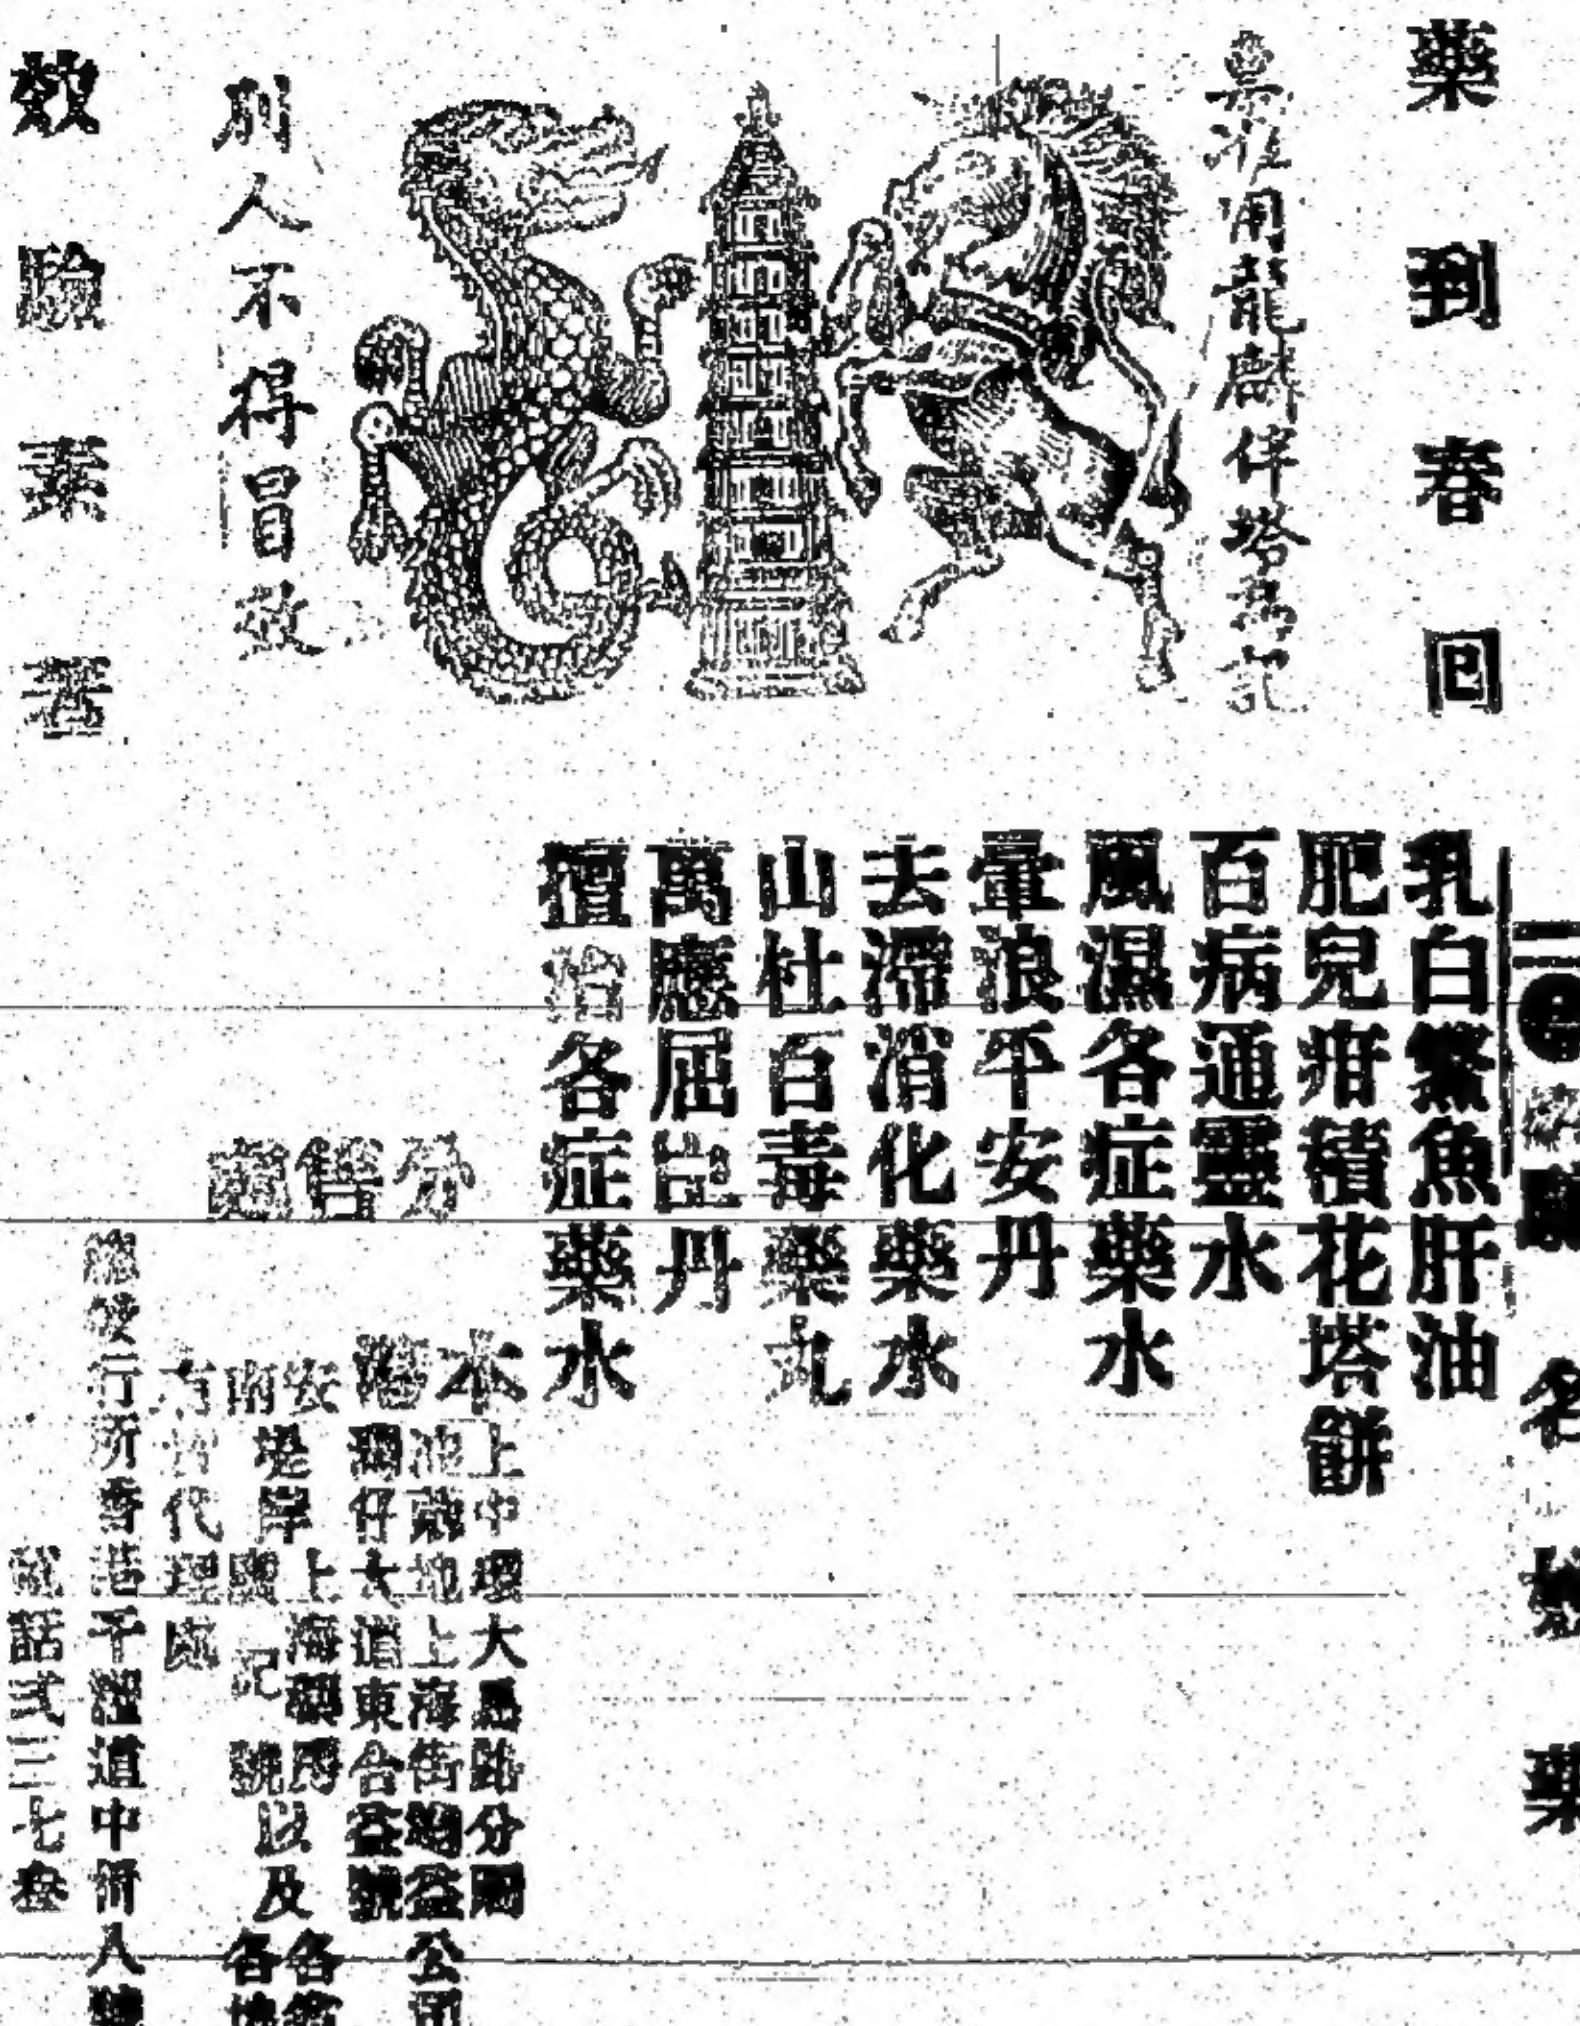 藥到春回
票准用龍麟伴塔為記
別人不得冒效
效驗素著
名
藥
乳白鰵魚肝油
肥兒疳積花塔餅
百病通靈水
風濕各症藥水
暈浪平安丹
去滯消化藥水
山杜百毒藥丸
萬應屈臣丹
擅治各症藥水
分售處
本港
上中環大馬路分局
油蔴地上海街均益公司
灣仔大道東合益號
安南堤岸
上海
廣記號
以及各
均有代理處
總發行所香港干諾道中卅八號
電話弍三七叁